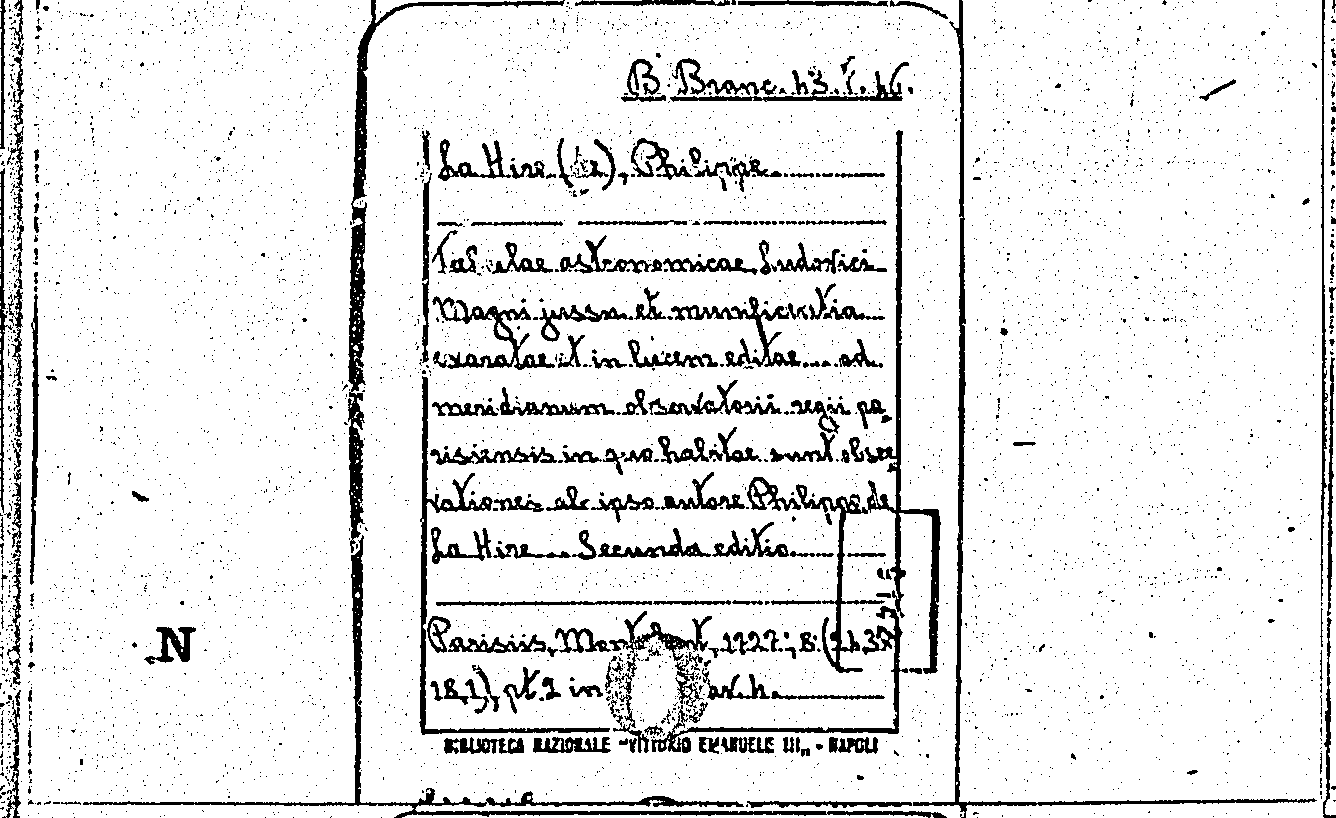 B. Branc. 43. I. 46.
La Hire (de), Philippe
Tabulae astronomicae Ludovici
Magni jussu et munificentia
exaratae et in lucem editae... ad
meridianum observatorii regii pa-
risiensis in quo habitae sunt obser-
vationes ab ipso autore Philippo de
La Hire... Secunda editio
Parisiis, 1727; 8.
18,1), pt. 2 in h.
N
BIBLIOTECA NAZIONALE "VITTORIO EMANUELE III" - NAPOLI